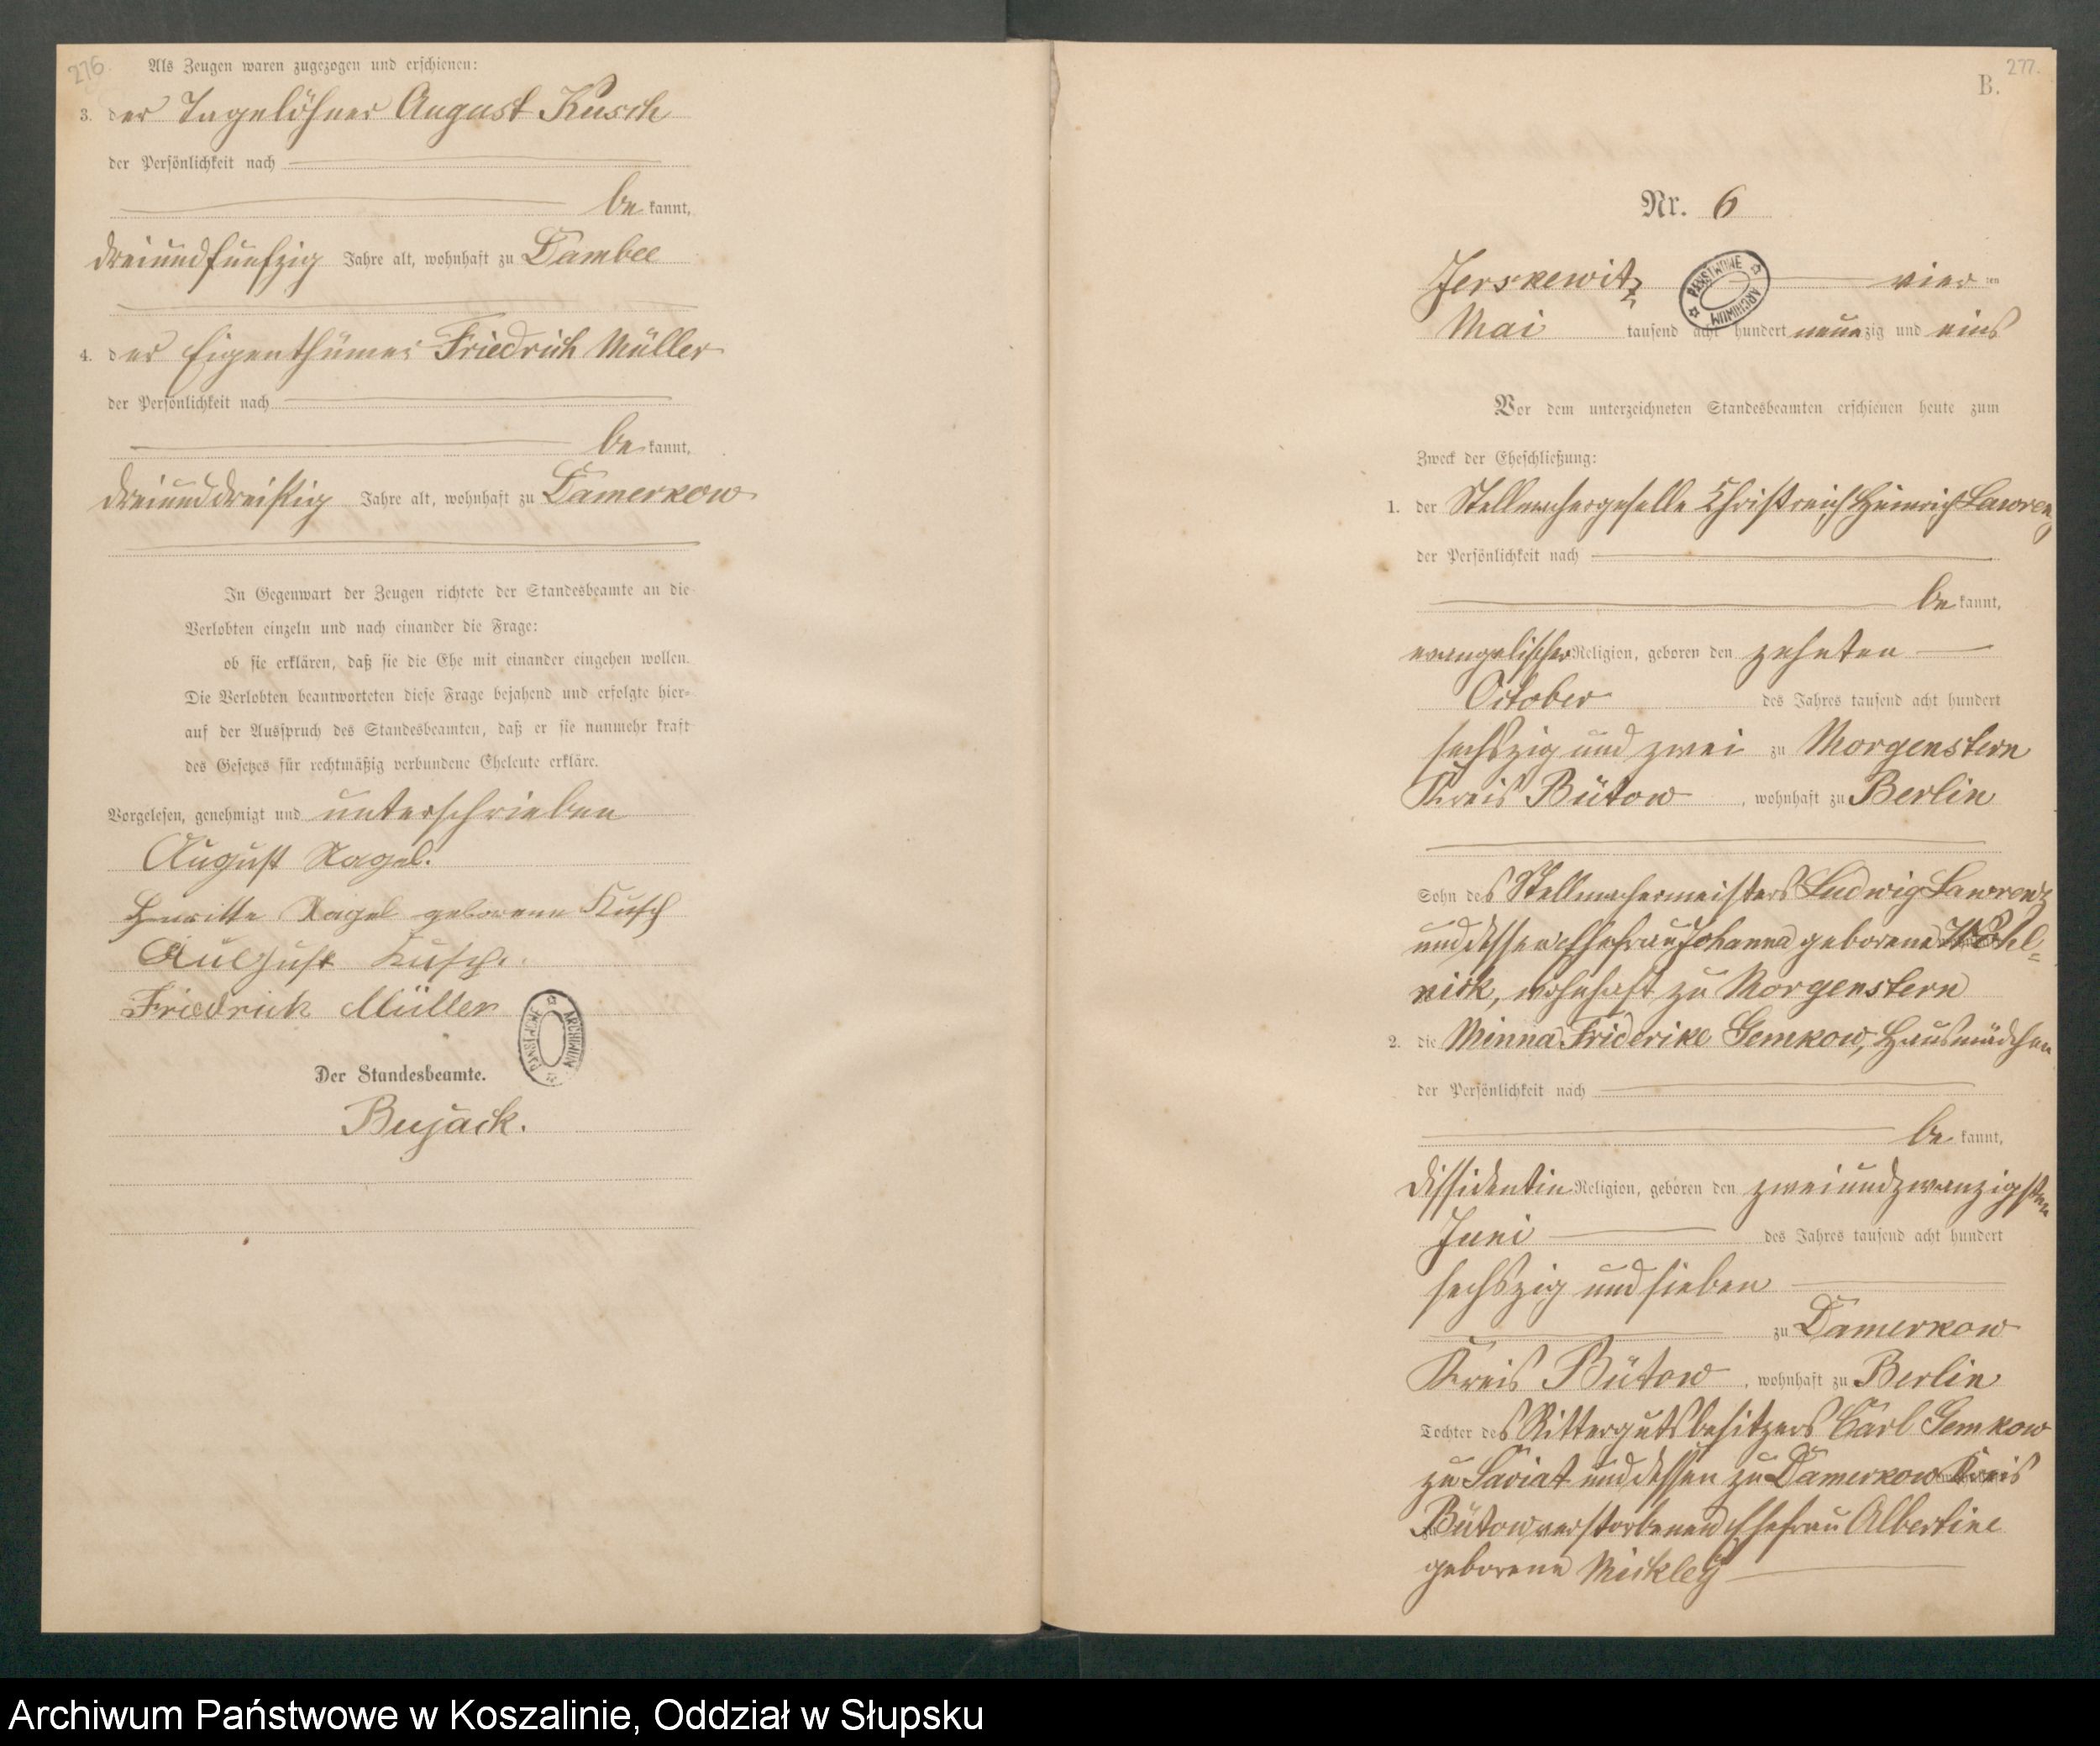 276.
Als Zeugen waren zugezogen und erschienen:
3. der Tagelöhner August Kusch
der Persönlichkeit nach
be kannt,
dreiundfünfzig Jahre alt, wohnhaft zu Dambee
4. der Eigenthümer Friedrich Müller
der Persönlichkeit nach
be kannt,
dreiunddreißig Jahre alt, wohnhaft zu Damerkow
In Gegenwart der Zeugen richtete der Standesbeamte an die
Verlobten einzeln und nach einander die Frage:
ob sie erklären, daß sie die Ehe mit einander eingehen wollen.
Die Verlobten beantworteten diese Frage bejahend und erfolgte hier-
auf der Ausspruch des Standesbeamten, daß er sie nunmehr kraft
des Gesetzes für rechtmäßig verbundene Eheleute erkläre.
Vorgelesen, genehmigt und unterschrieben
August Nagel.
Henritte Nagel geborene Kusch
August Kusch.
Friedrich Müller
PAŃSTWOWE ARCHIWUM
Der Standesbeamte.
Bujack.
277.
B.
Nr. 6
Jerskewitz vier ten
PAŃSTWOWE ARCHIWUM
Mai tausend acht hundert neunzig und eins
Vor dem unterzeichneten Standesbeamten erschienen heute zum
Zweck der Eheschließung:
1. der Stellmachergeselle Christreich Heinrich Lawrenz
der Persönlichkeit nach
be kannt,
evangelischer Religion, geboren den zehnten
October des Jahres tausend acht hundert
sechszig und zwei zu Morgenstern
Kreis Bütow, wohnhaft zu Berlin
Sohn des Stellmachermeisters Ludwig Lawrenz
und dessen Ehefrau Johanna geborene Wohl-
nick, wohnhaft zu Morgenstern
2. die Minna Friderike Gemkow, Hausmädchen
der Persönlichkeit nach
be kannt,
Dissidentin Religion, geboren den zweiundzwanzigsten
Juni des Jahres tausend acht hundert
sechszig und sieben
zu Damerkow
Kreis Bütow, wohnhaft zu Berlin
Tochter des Rittergutsbesitzers Carl Gemkow
zu Saviat und dessen zu Damerkow Kreis
Bütow verstorbenen Ehefrau Albertine
geborene Mickley
Archiwum Państwowe w Koszalinie, Oddział w Słupsku